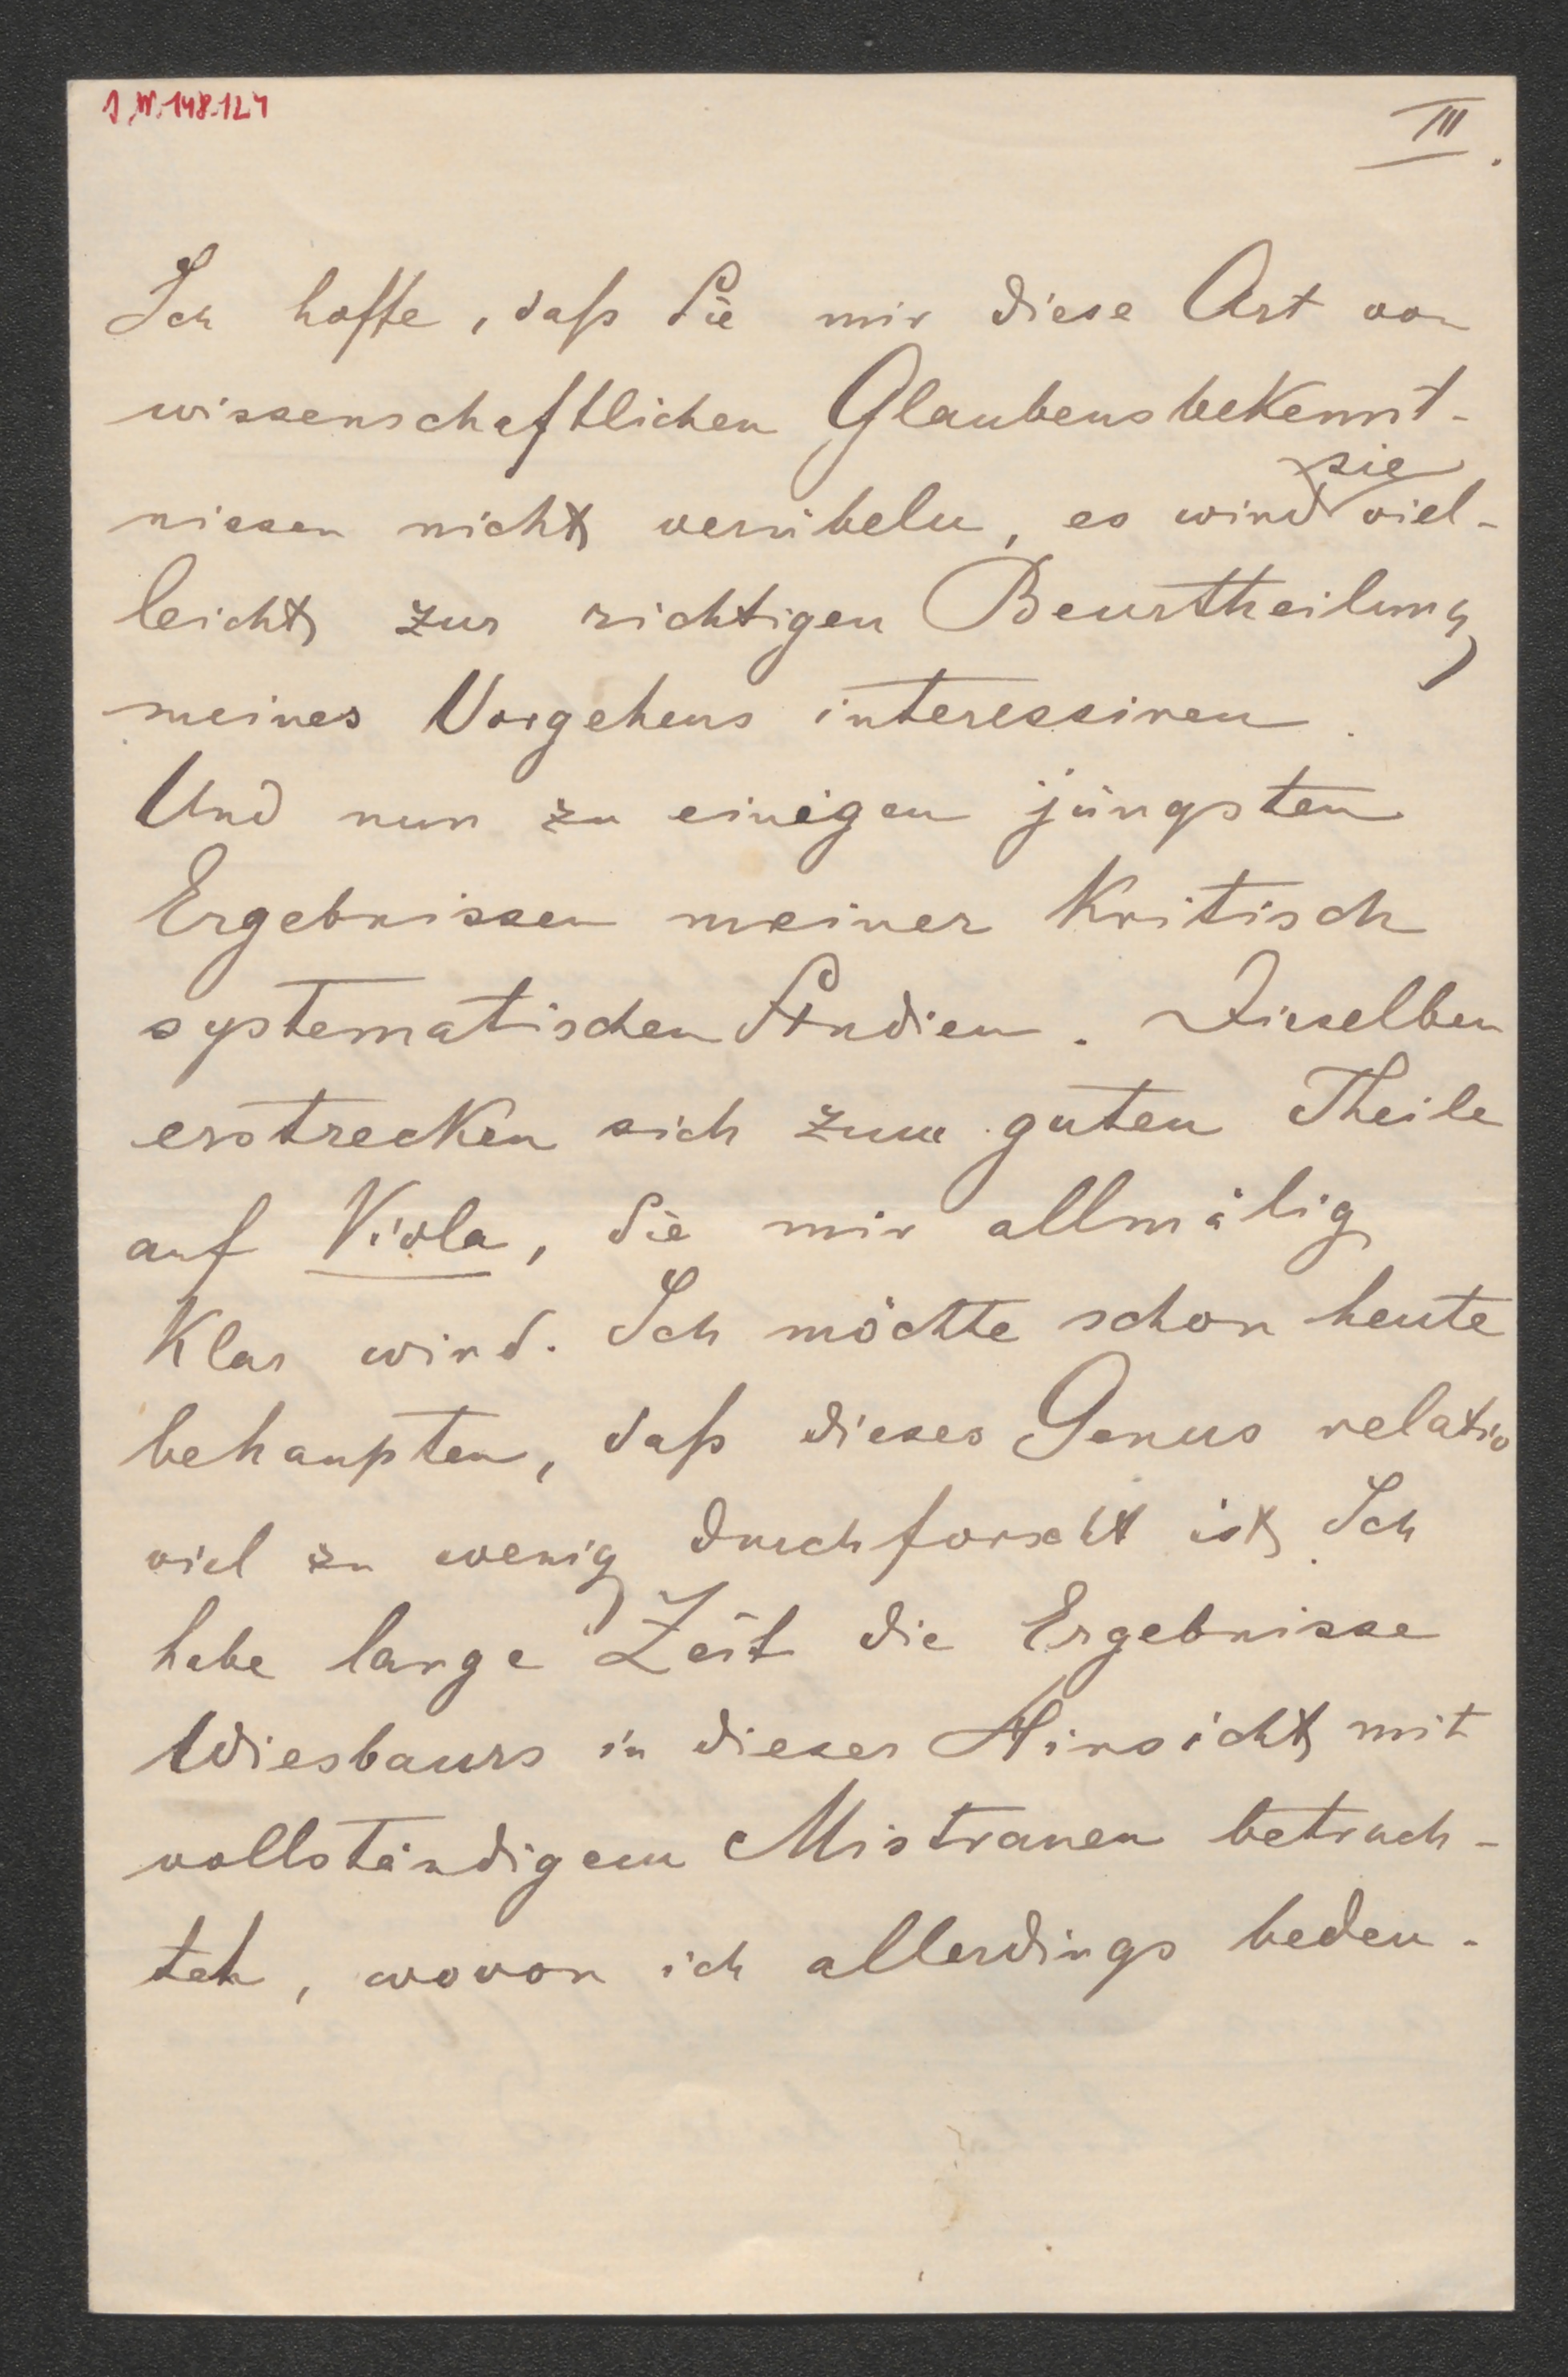 J.N. 148.124
III.
Ich hoffe, daß Sie mir diese Art von
wissenschaftlichen Glaubensbekennt-
sie
nissen nicht verübeln, es wird viel-
leicht zur richtigen Beurtheilung
meines Vorgehens interessiren.
Und nun zu einigen jüngsten
Ergebnissen meiner kritisch
systematischen Studien. Dieselben
erstrecken sich zum guten Theile
auf Viola, die mir allmälig
klar wird. Ich möchte schon heute
behaupten, daß dieses Genus relativ
viel zu wenig durchforscht ist. Ich
habe lange Zeit die Ergebnisse
Wiesbaurs in dieser Hinsicht mit
vollständigem Mistrauen betrach-
tet, wovon ich allerdings bedeu-